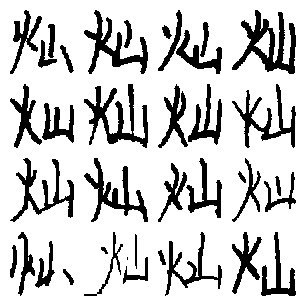 灿灿灿灿
灿灿灿灿
灿灿灿灿
灿灿灿灿